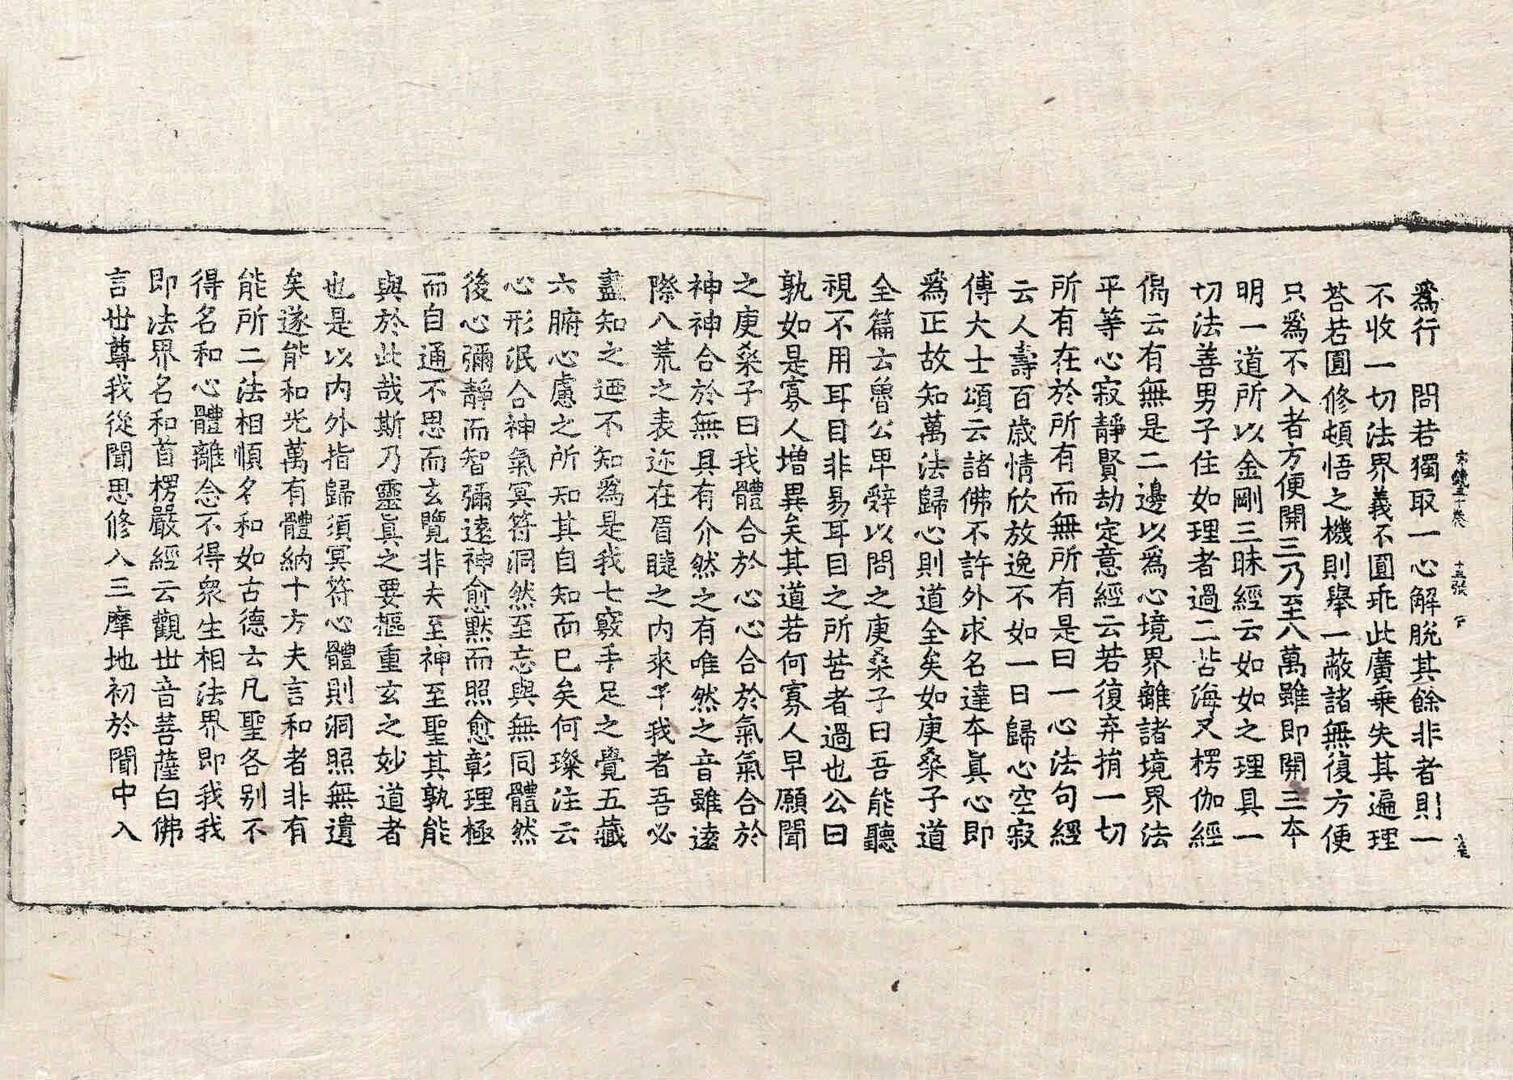 爲行　問若獨取一心解脫其餘非者則一
不收一切法界義不圓乖此廣乘失其遍理
荅若圓修頓悟之機則舉一蔽諸無復方便
只爲不入者方便開三乃至八萬雖即開三本
明一道所以金剛三昧經云如如之理具一
切法善男子住如理者過三苦海又楞伽經
偈云有無是二邊以爲心境界離諸境界法
平等心寂靜賢劫定意經云若復弃捐一切
所有在於所有而無所有是曰一心法句經
云人壽百歲情欣放逸不如一日歸心空寂
傅大士頌云諸佛不許外求名達本真心即
爲正故知萬法歸心則道全矣如庚桑子道
全篇云魯公卑辭以問之庚桑子曰吾能聽
視不用耳目非易耳目之所苦者過也公曰
孰如是寡人增異矣其道若何寡人早願聞
之庚桑子曰我體合於心心合於氣氣合於
神神合於無具有介然之有唯然之音雖遠
際八荒之表迩在眉睫之內來乎我者吾必
盡知之迺不知爲是我七竅手足之覺五藏
六腑心慮之所知其自知而巳矣何璨注云
心形泯合神氣冥符洞然至忘與無同體然
後心彌靜而智彌遠神愈默而照愈彰理極
而自通不思而玄覽非夫至神至聖其孰能
與於此哉斯乃靈真之要樞重玄之妙道者
也是以內外指歸須冥符心體則洞照無遺
矣遂能和光萬有體納十方夫言和者非有
能所二法相順名和如古德云凡聖各別不
得名和心體離念不得衆生相法界即我我
即法界名和首楞嚴經云觀世音菩薩白佛
言世尊我從聞思修入三摩地初於聞中入